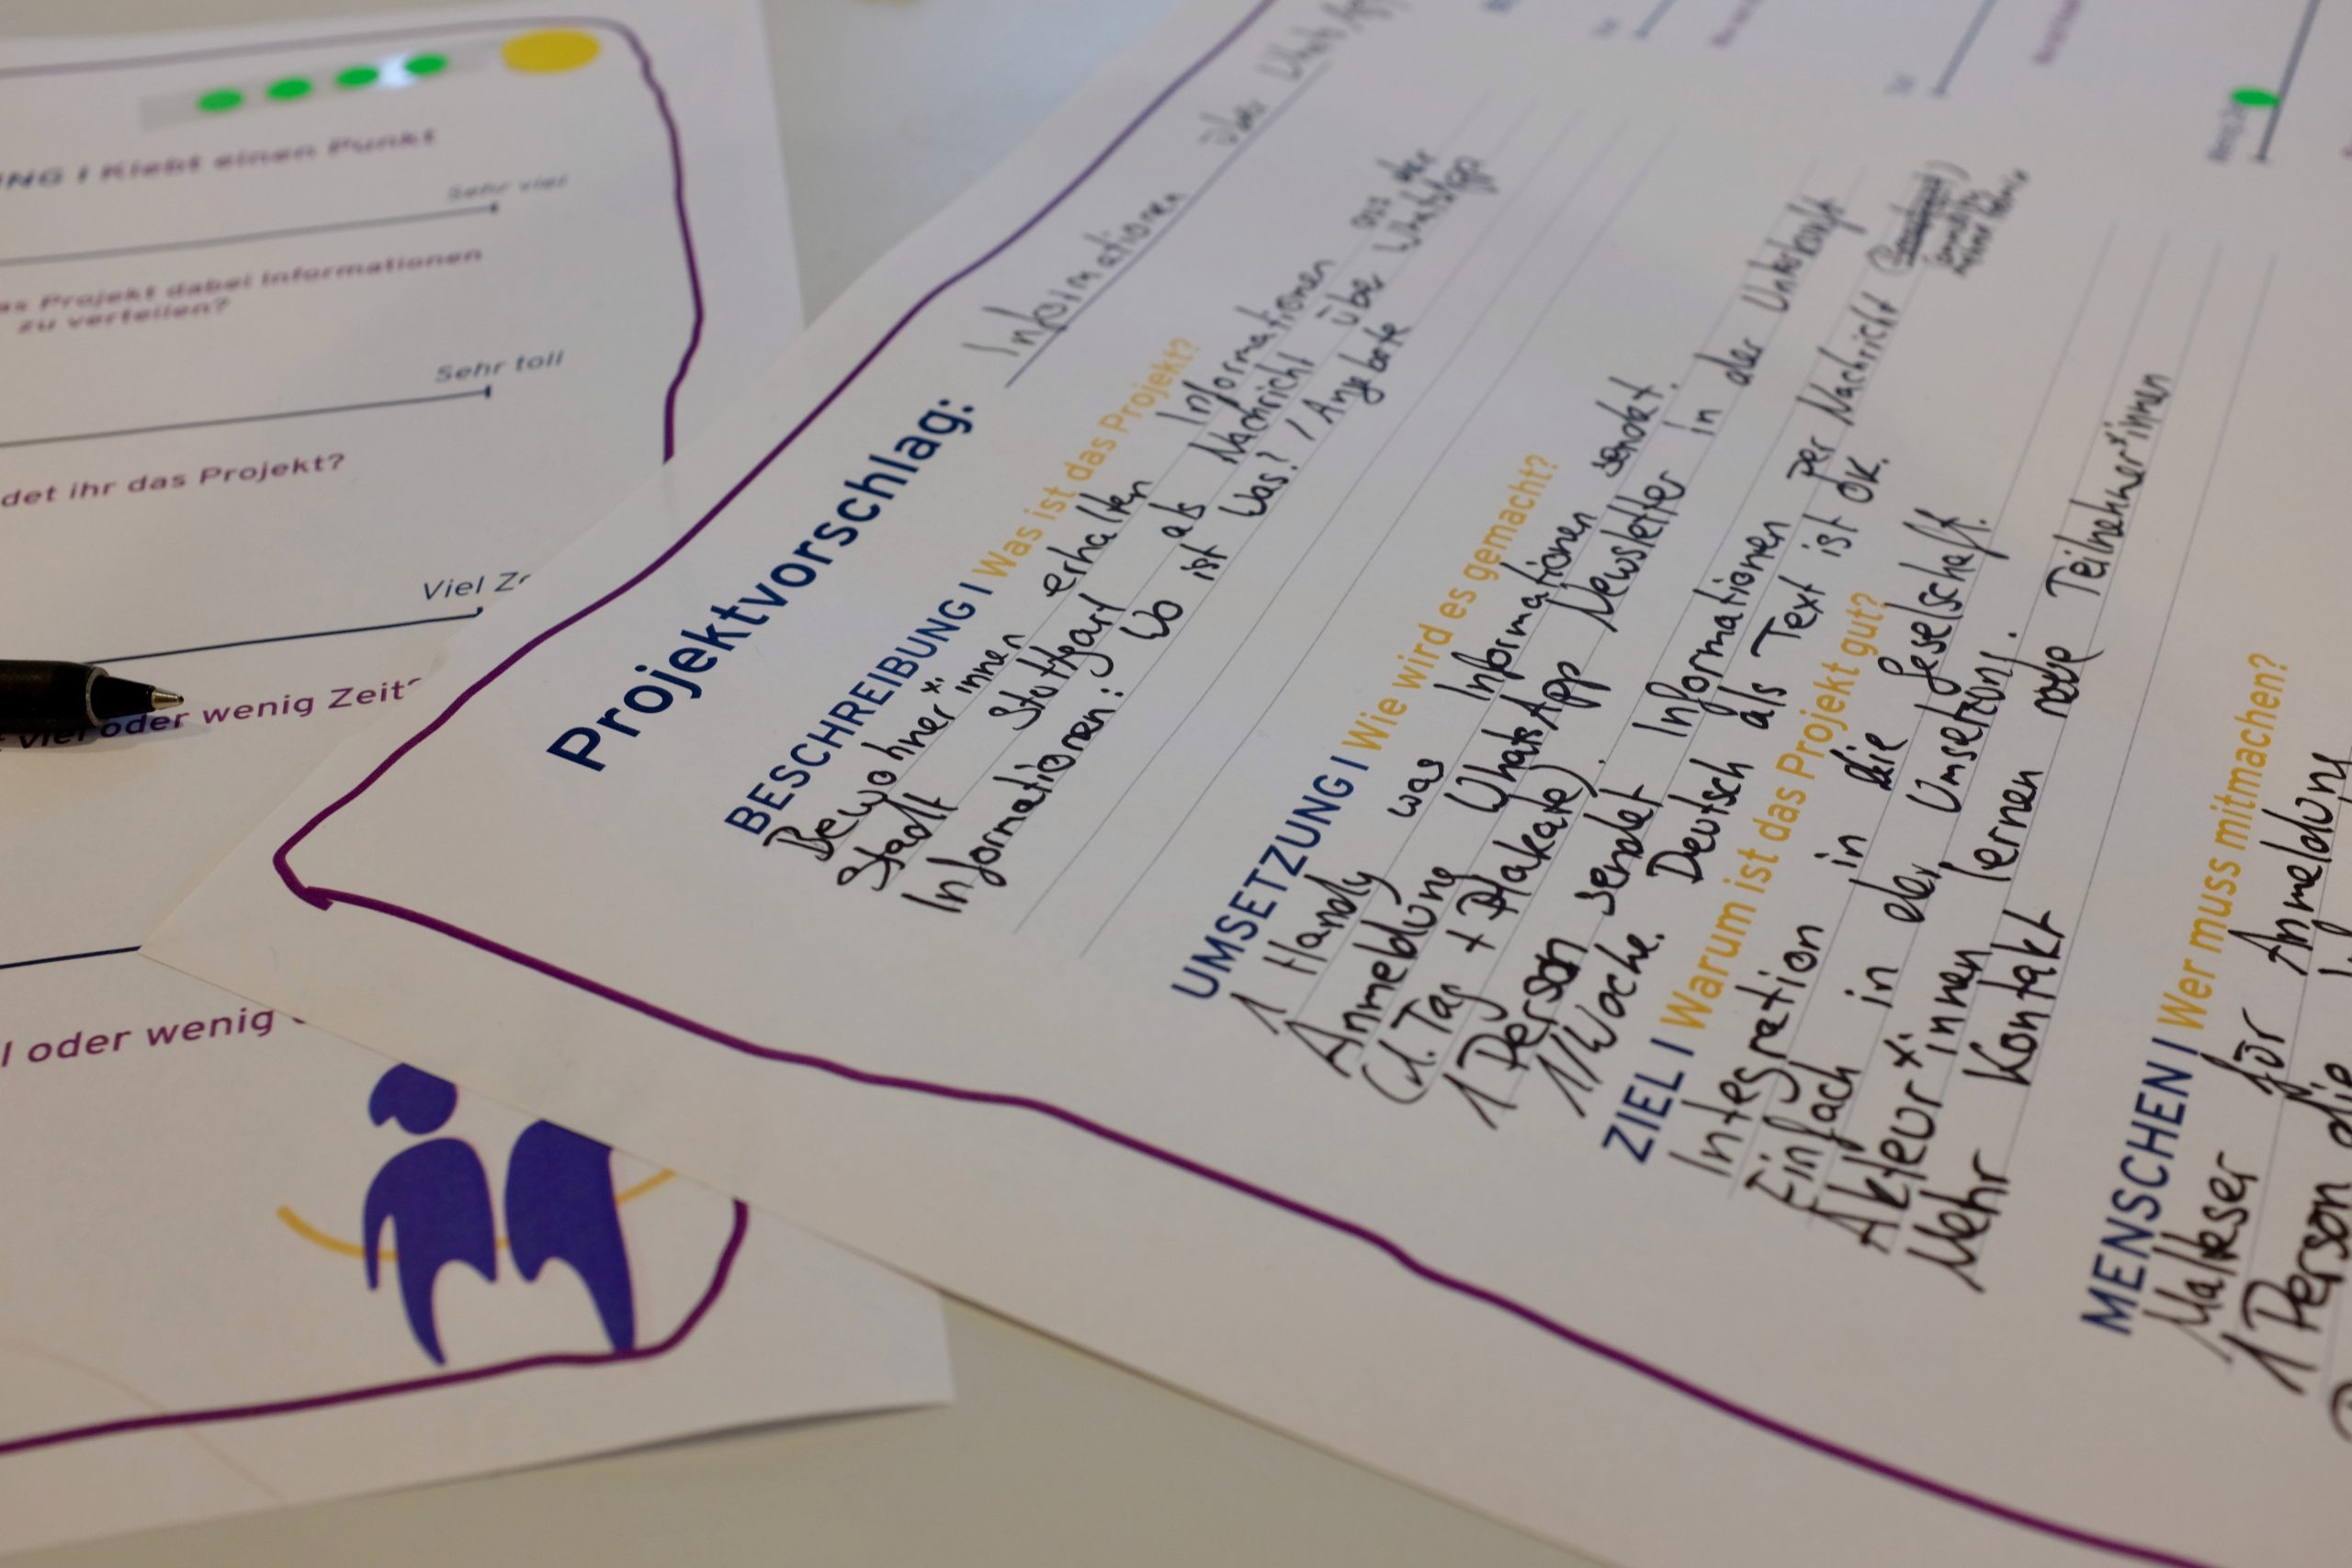 NG I Klebt einen Punkt
Sehr viel
as Projekt dabei Informationen
zu verteilen?
Sehr toll
det ihr das Projekt?
Viel Ze
viel oder wenig Zeit
l oder wenig
Projektvorschlag: Informationen über WhatsApp
BESCHREIBUNG I Was ist das Projekt?
Bewohner*innen erhalten Informationen aus der
Stadt Stuttgart als Nachricht über WhatsApp
Informationen: Wo ist was? / Angebote
UMSETZUNG I Wie wird es gemacht?
1 Handy was Informationen sendet.
Anmeldung WhatsApp Newsletter in der Unterkunft
(1. Tag + Plakate).
1 Person sendet Informationen per Nachricht
1/Woche. Deutsch als Text ist OK.
ZIEL I Warum ist das Projekt gut?
Integration in die Geselschaft.
Einfach in der Umsetzung.
Akteur*innen lernen neue Teilnehmer*innen
Mehr Kontakt
MENSCHEN I Wer muss mitmachen?
Malteser für Anmeldung
1 Person die